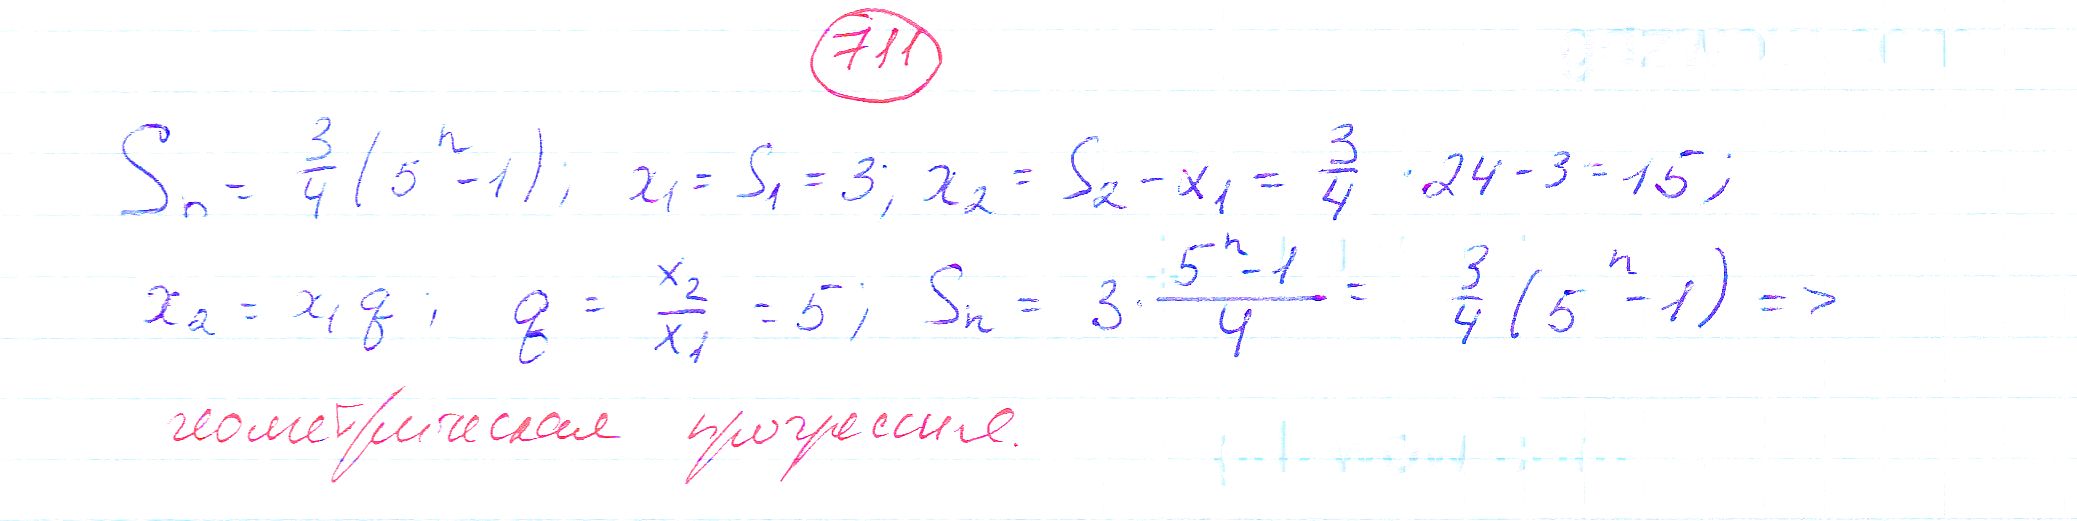 711
Sₙ = 3/4 (5ⁿ - 1); x₁ = S₁ = 3; x₂ = S₂ - x₁ = 3/4 · 24 - 3 = 15;
x₂ = x₁q; q = x₂/x₁ = 5; Sₙ = 3 · (5ⁿ - 1)/4 = 3/4 (5ⁿ - 1) =>
геометрическая прогрессия.